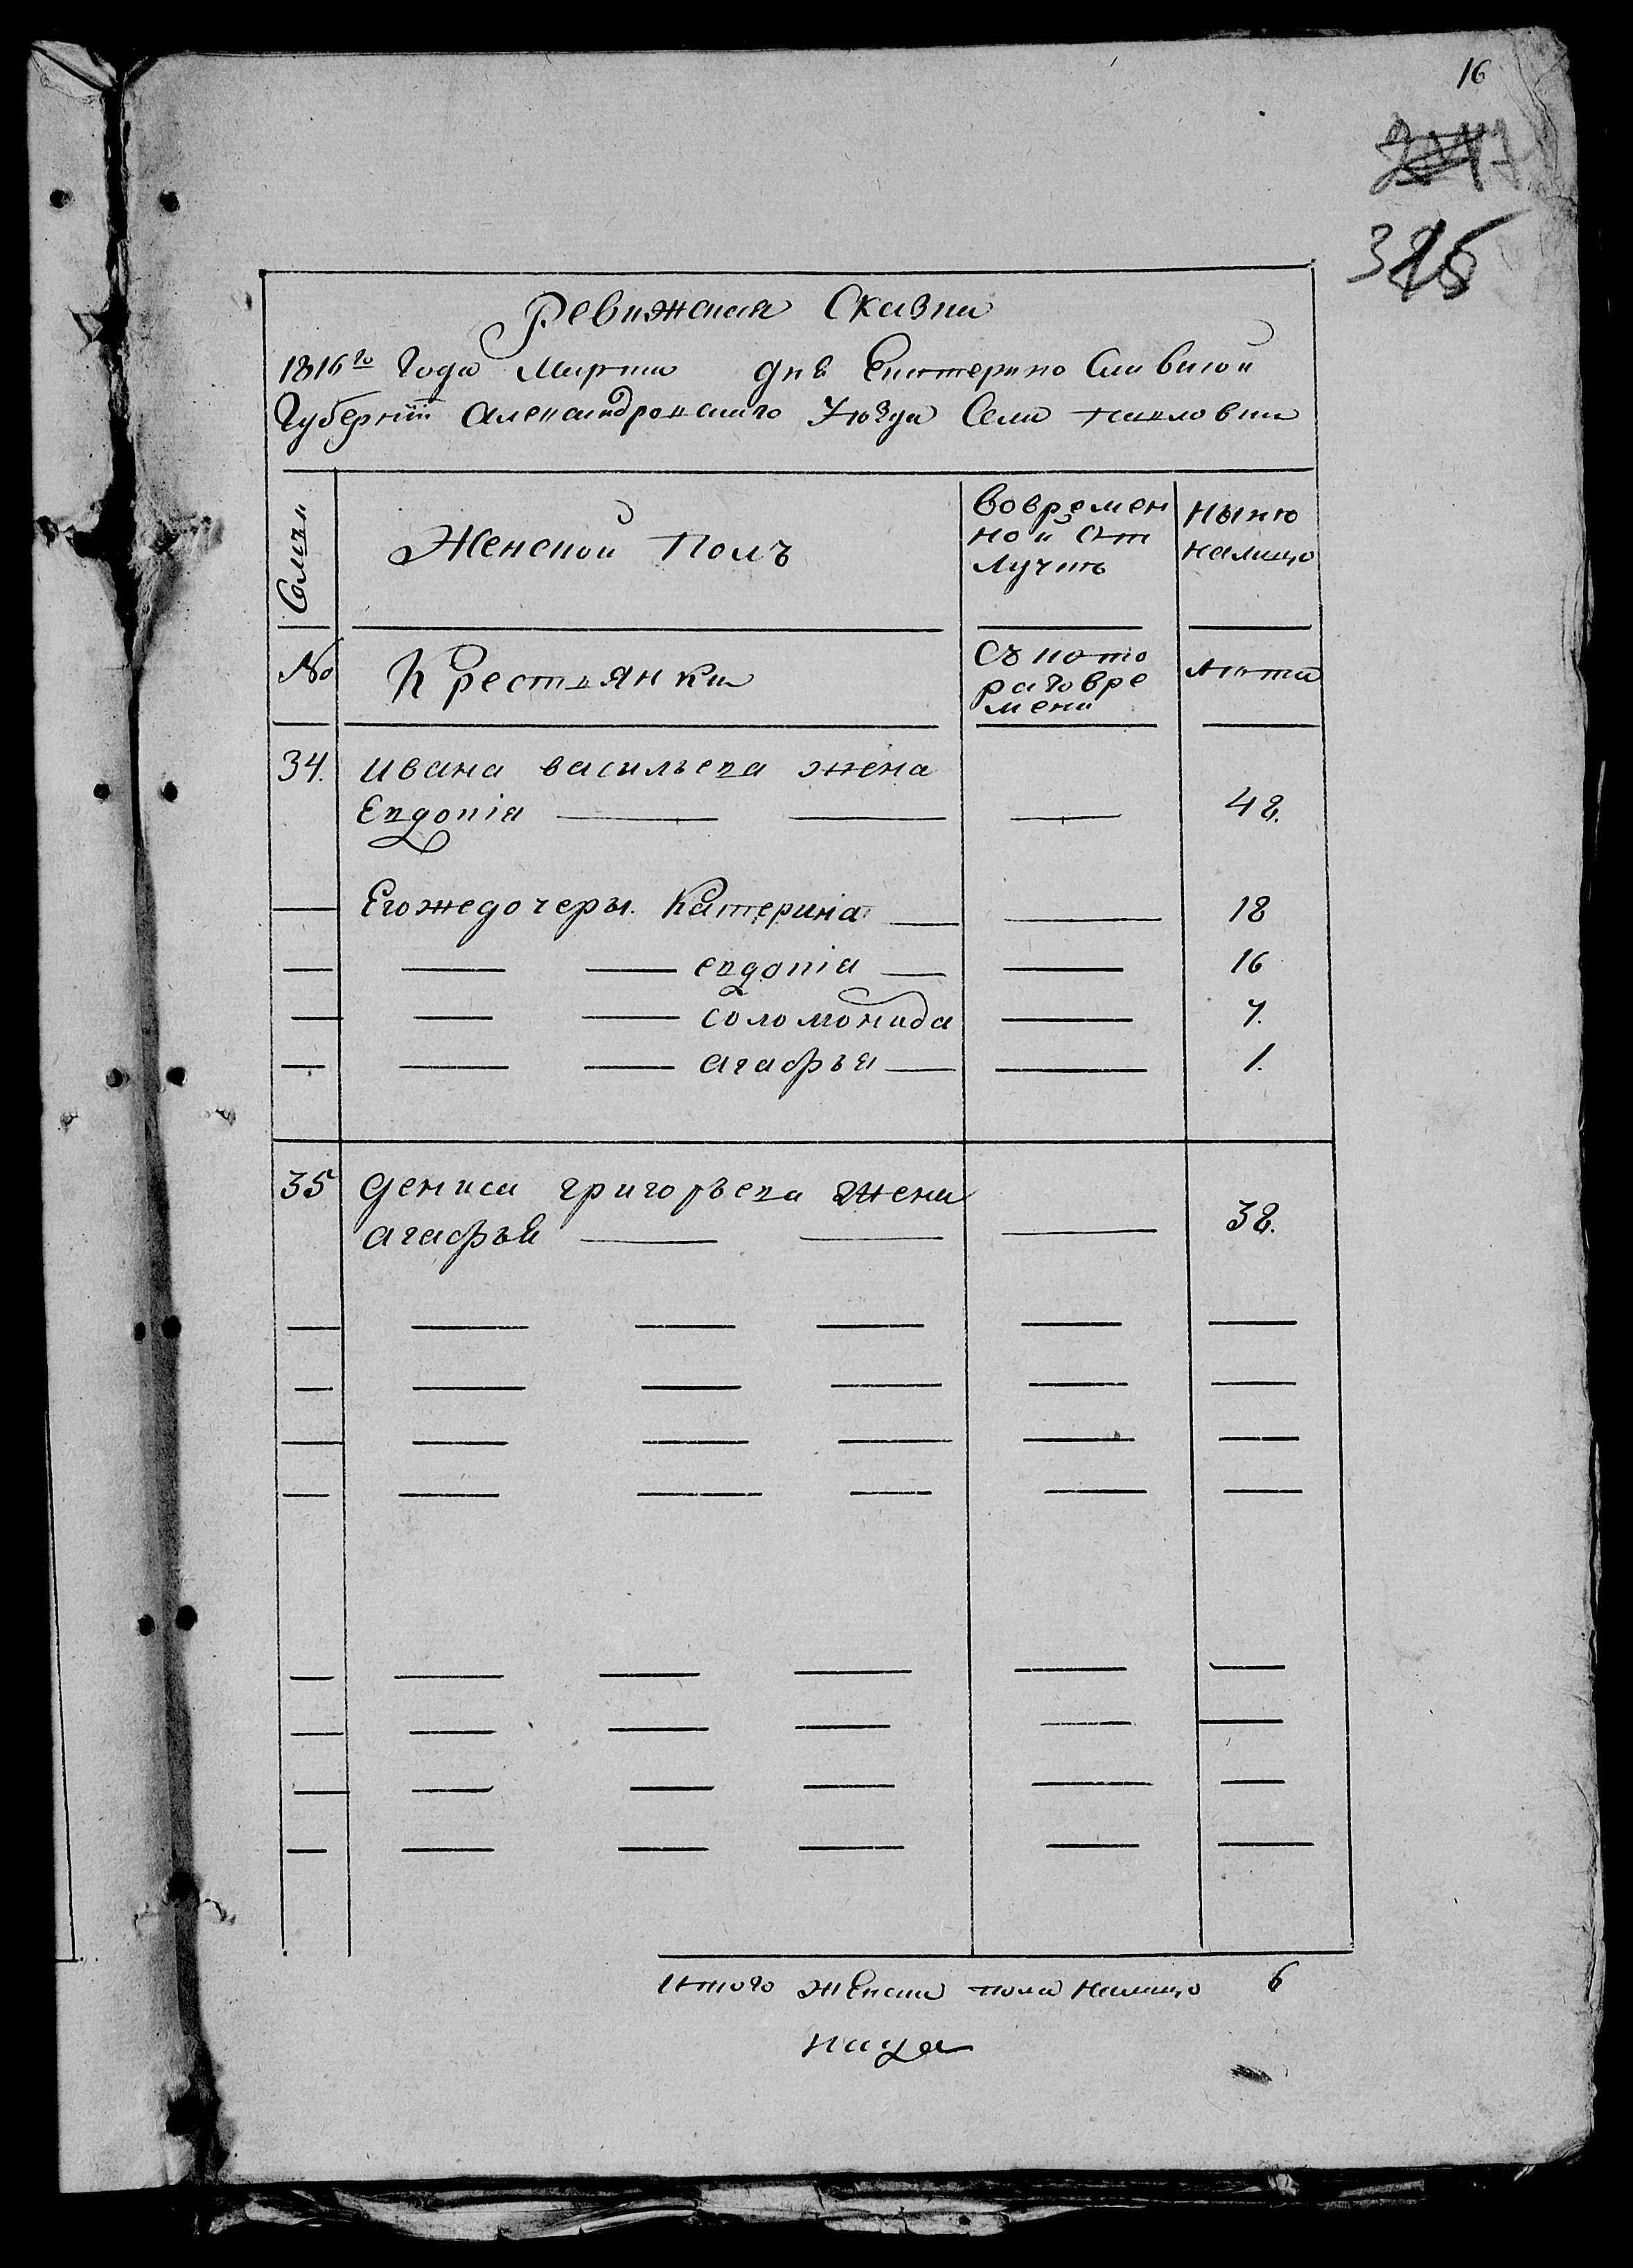 16
325
Ревижская Сказка
1816го Года Марта дня Екатерино Славской
Губернїи Александровскаго Уѣзда Села Павловки
Семьи
Женской Полъ
Вовремен
ной От
лучкѣ
Нынѣ
налицо
№
Крестьянки
Съ кото
раговре
мени
Лѣта
34. Ивана васильева жена
Евдокія 48.
Егожедочеры. Катерина 18
евдокія 16
соломонида 7.
агафья 1.
35 Дениса григорьева жена
агафья 38.
Итого женска пола налицо 6